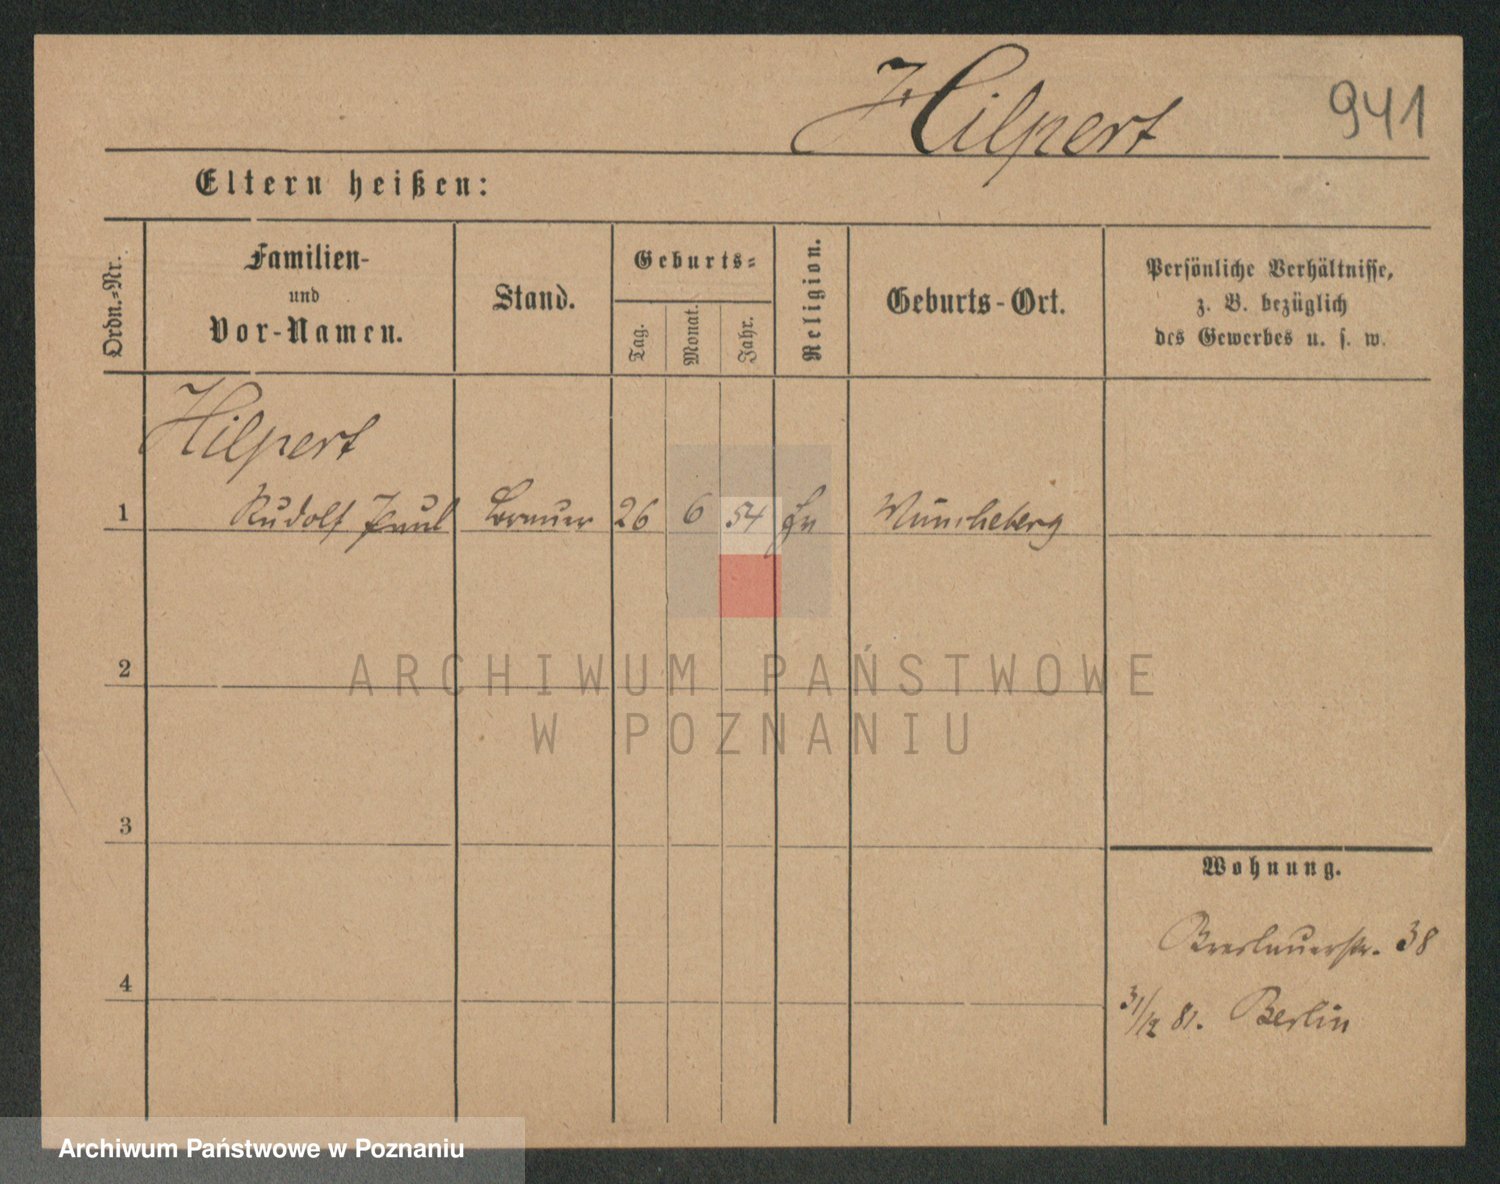 Hilpert 941
Eltern heißen:
Ordn.=Nr.
Familien-
und
Vor-Namen.
Stand.
Geburts=
Tag.
Monat.
Jahr.
Religion.
Geburts-Ort.
Persönliche Verhältnisse,
z. B. bezüglich
des Gewerbes u. s. w.
Hilpert
1 Rudolf Paul 26 6 54 Müncheberg
2
ARCHIWUM PAŃSTWOWE
W POZNANIU
3
Wohnung.
Breslauerstr. 38
4
31/12 81. Berlin
Archiwum Państwowe w Poznaniu